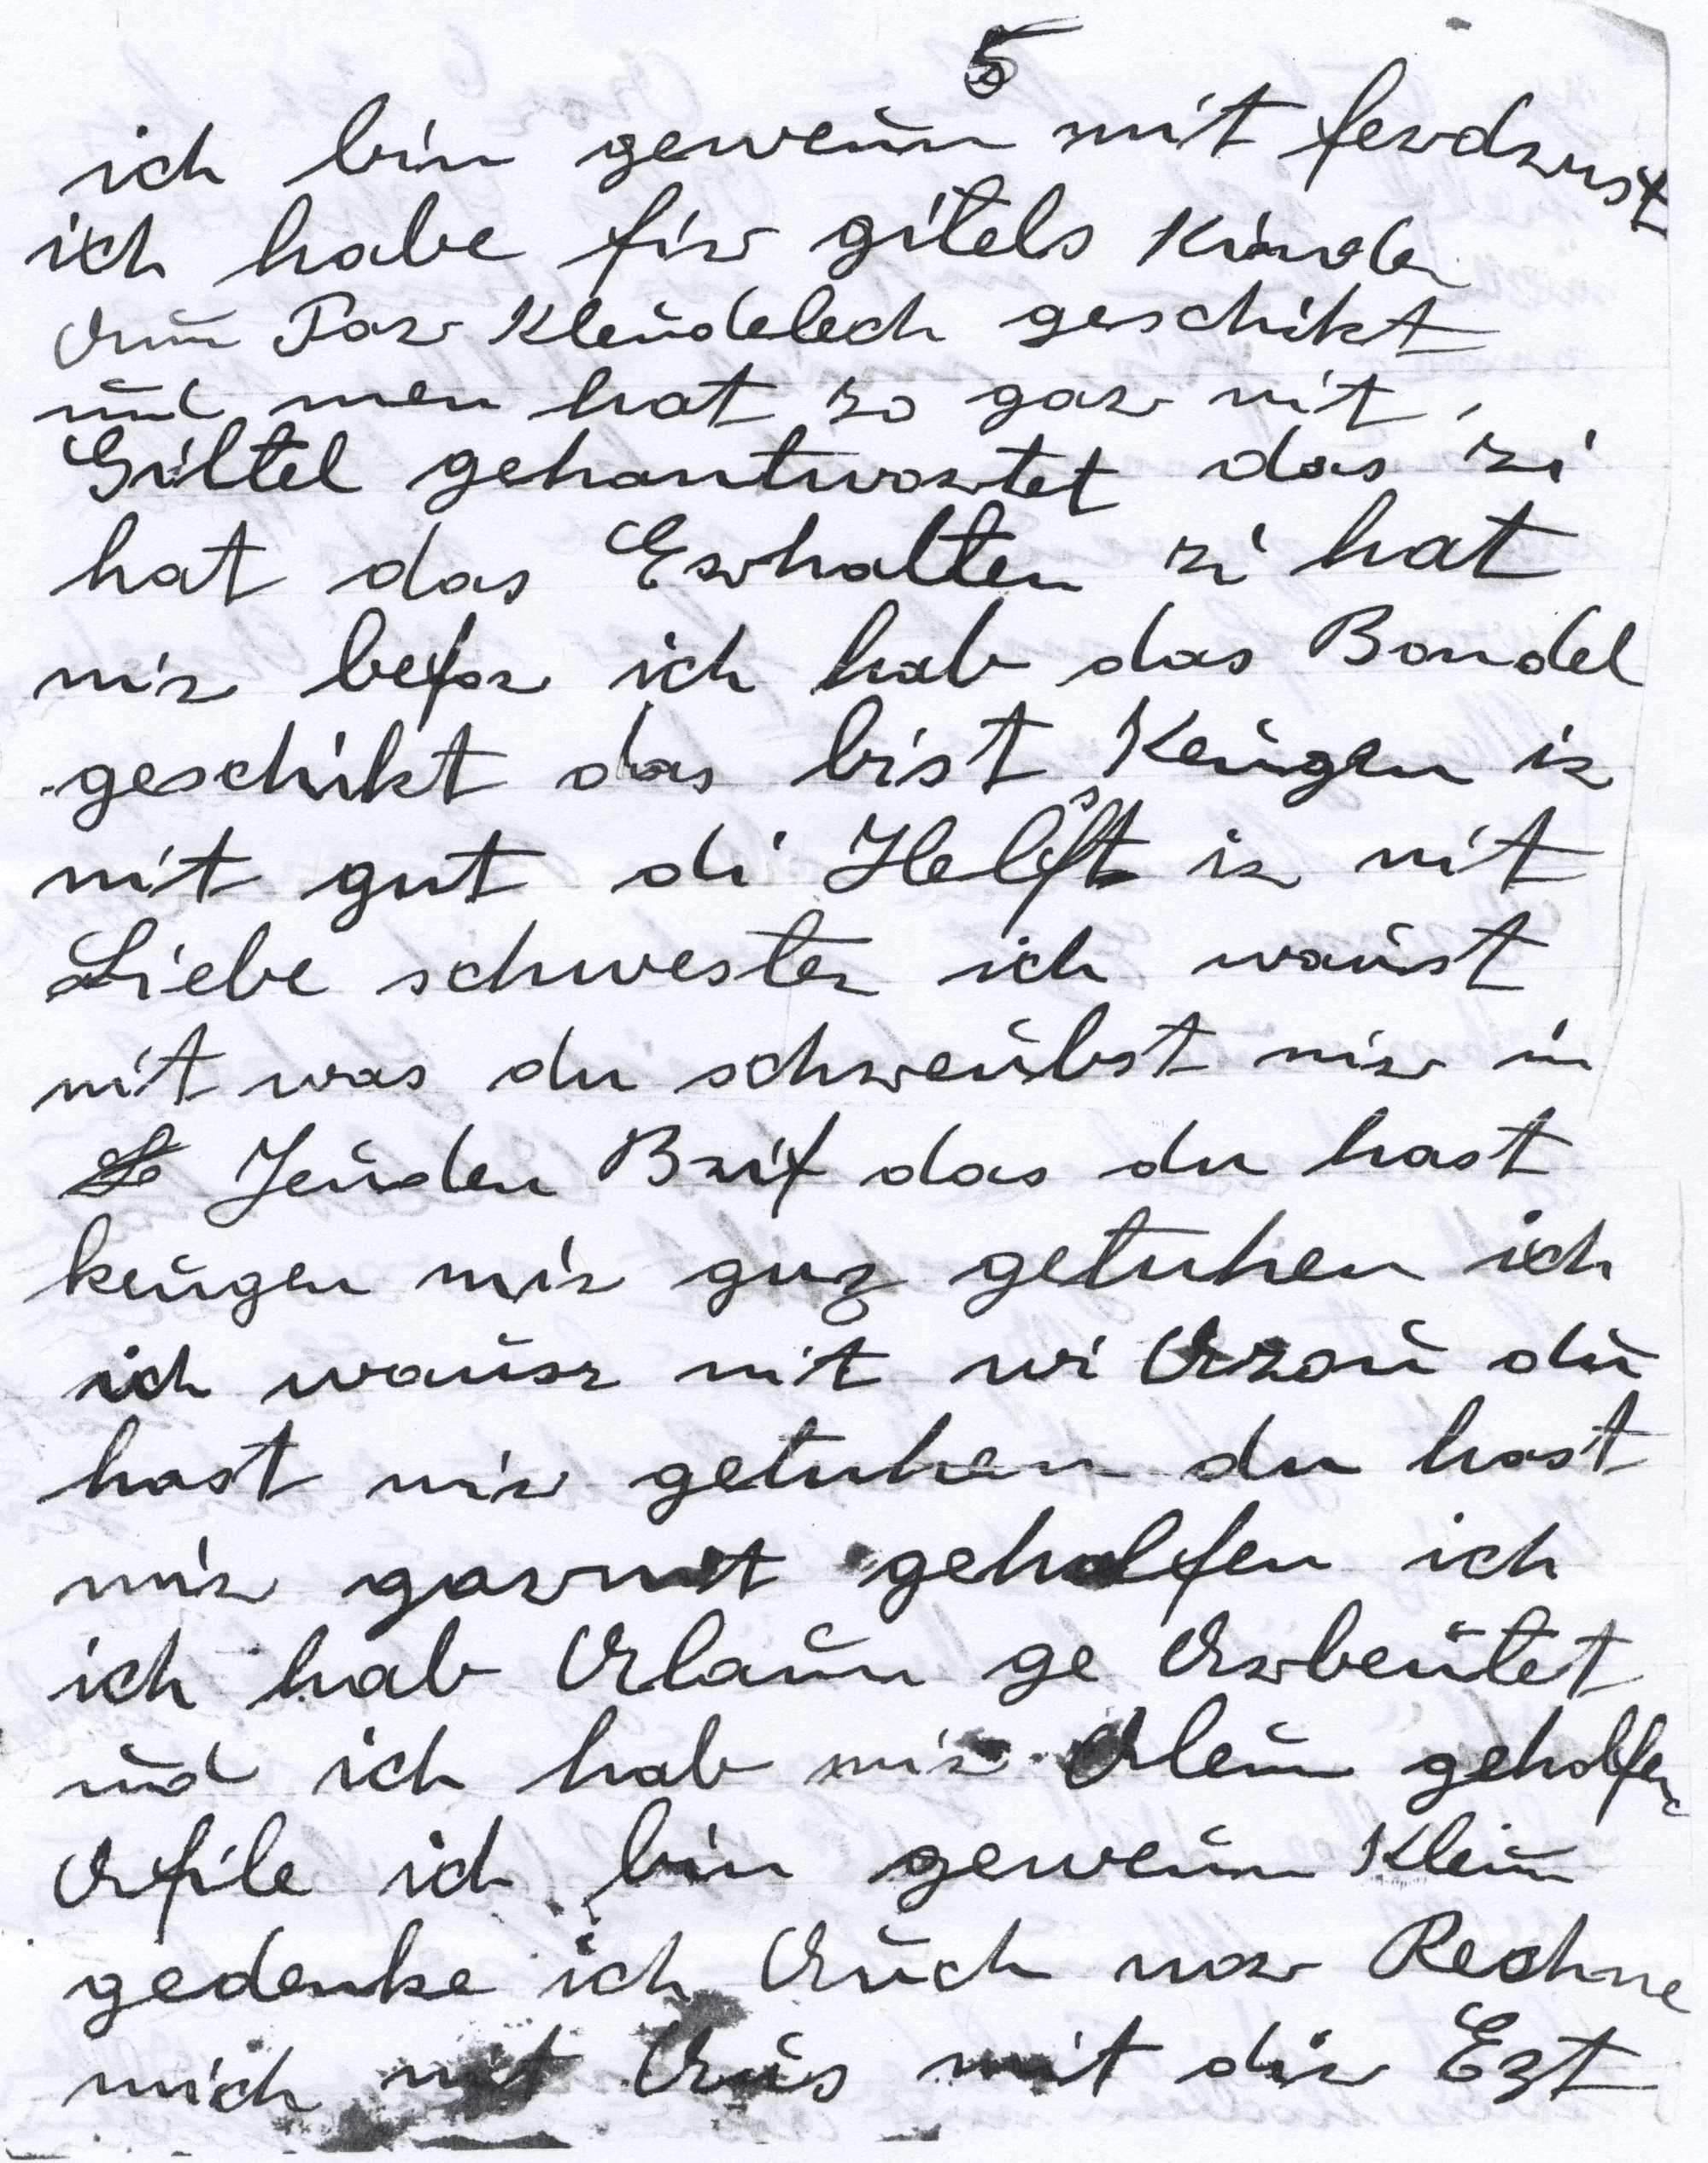 5
ich bin geweün mit ferdrust
ich habe fir gitels Kinder
Aün Par Kleüdelech geschikt
und men hat zo gar nit,
Giltel gehantwortet das zi
hat das Erhalten zi hat
mir befor ich hab das Bondel
geschikt das bist Keügen iz
nit gut di Helfst iz nit
Liebe schwester ich waüst
nit was du schreübst mir in
Jeüden Brif das du hast
keügen mir guz getuhen ich
ich waüsz nit wi Azoü dü
hast mir getuhen du hast
mir garnit geholfen ich
ich hab Alaün ge Arbeütet
und ich hab mir Aleün geholfen
Afile ich bin geweün Kleün
gedenke ich Aüch nor Rechne
mich nit Aüs mit dir Ezt